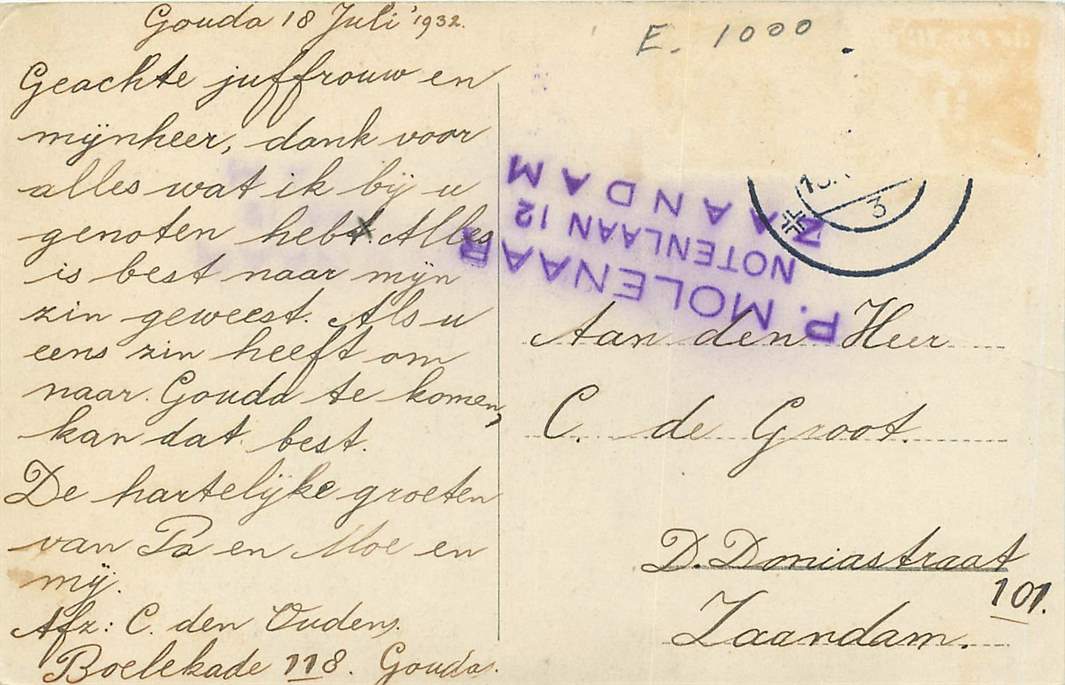 Gouda 18 Juli '1932.
Geachte juffrouw en
mijnheer, dank voor
alles wat ik bij u
genoten heb Alles
is best naar mijn
zin geweest. Als u
eens zin heeft om
naar Gouda te komen,
kan dat best.
De hartelijke groeten
van Pa en Moe en
mij.
Afz: C. den Ouden.
Boelekade 118. Gouda.
E. 1000
P. MOLENAAR
NOTENLAAN 12
ZAANDAM
3
Aan den Heer
C. de Groot.
D. Doniastraat
101.
Zaandam.